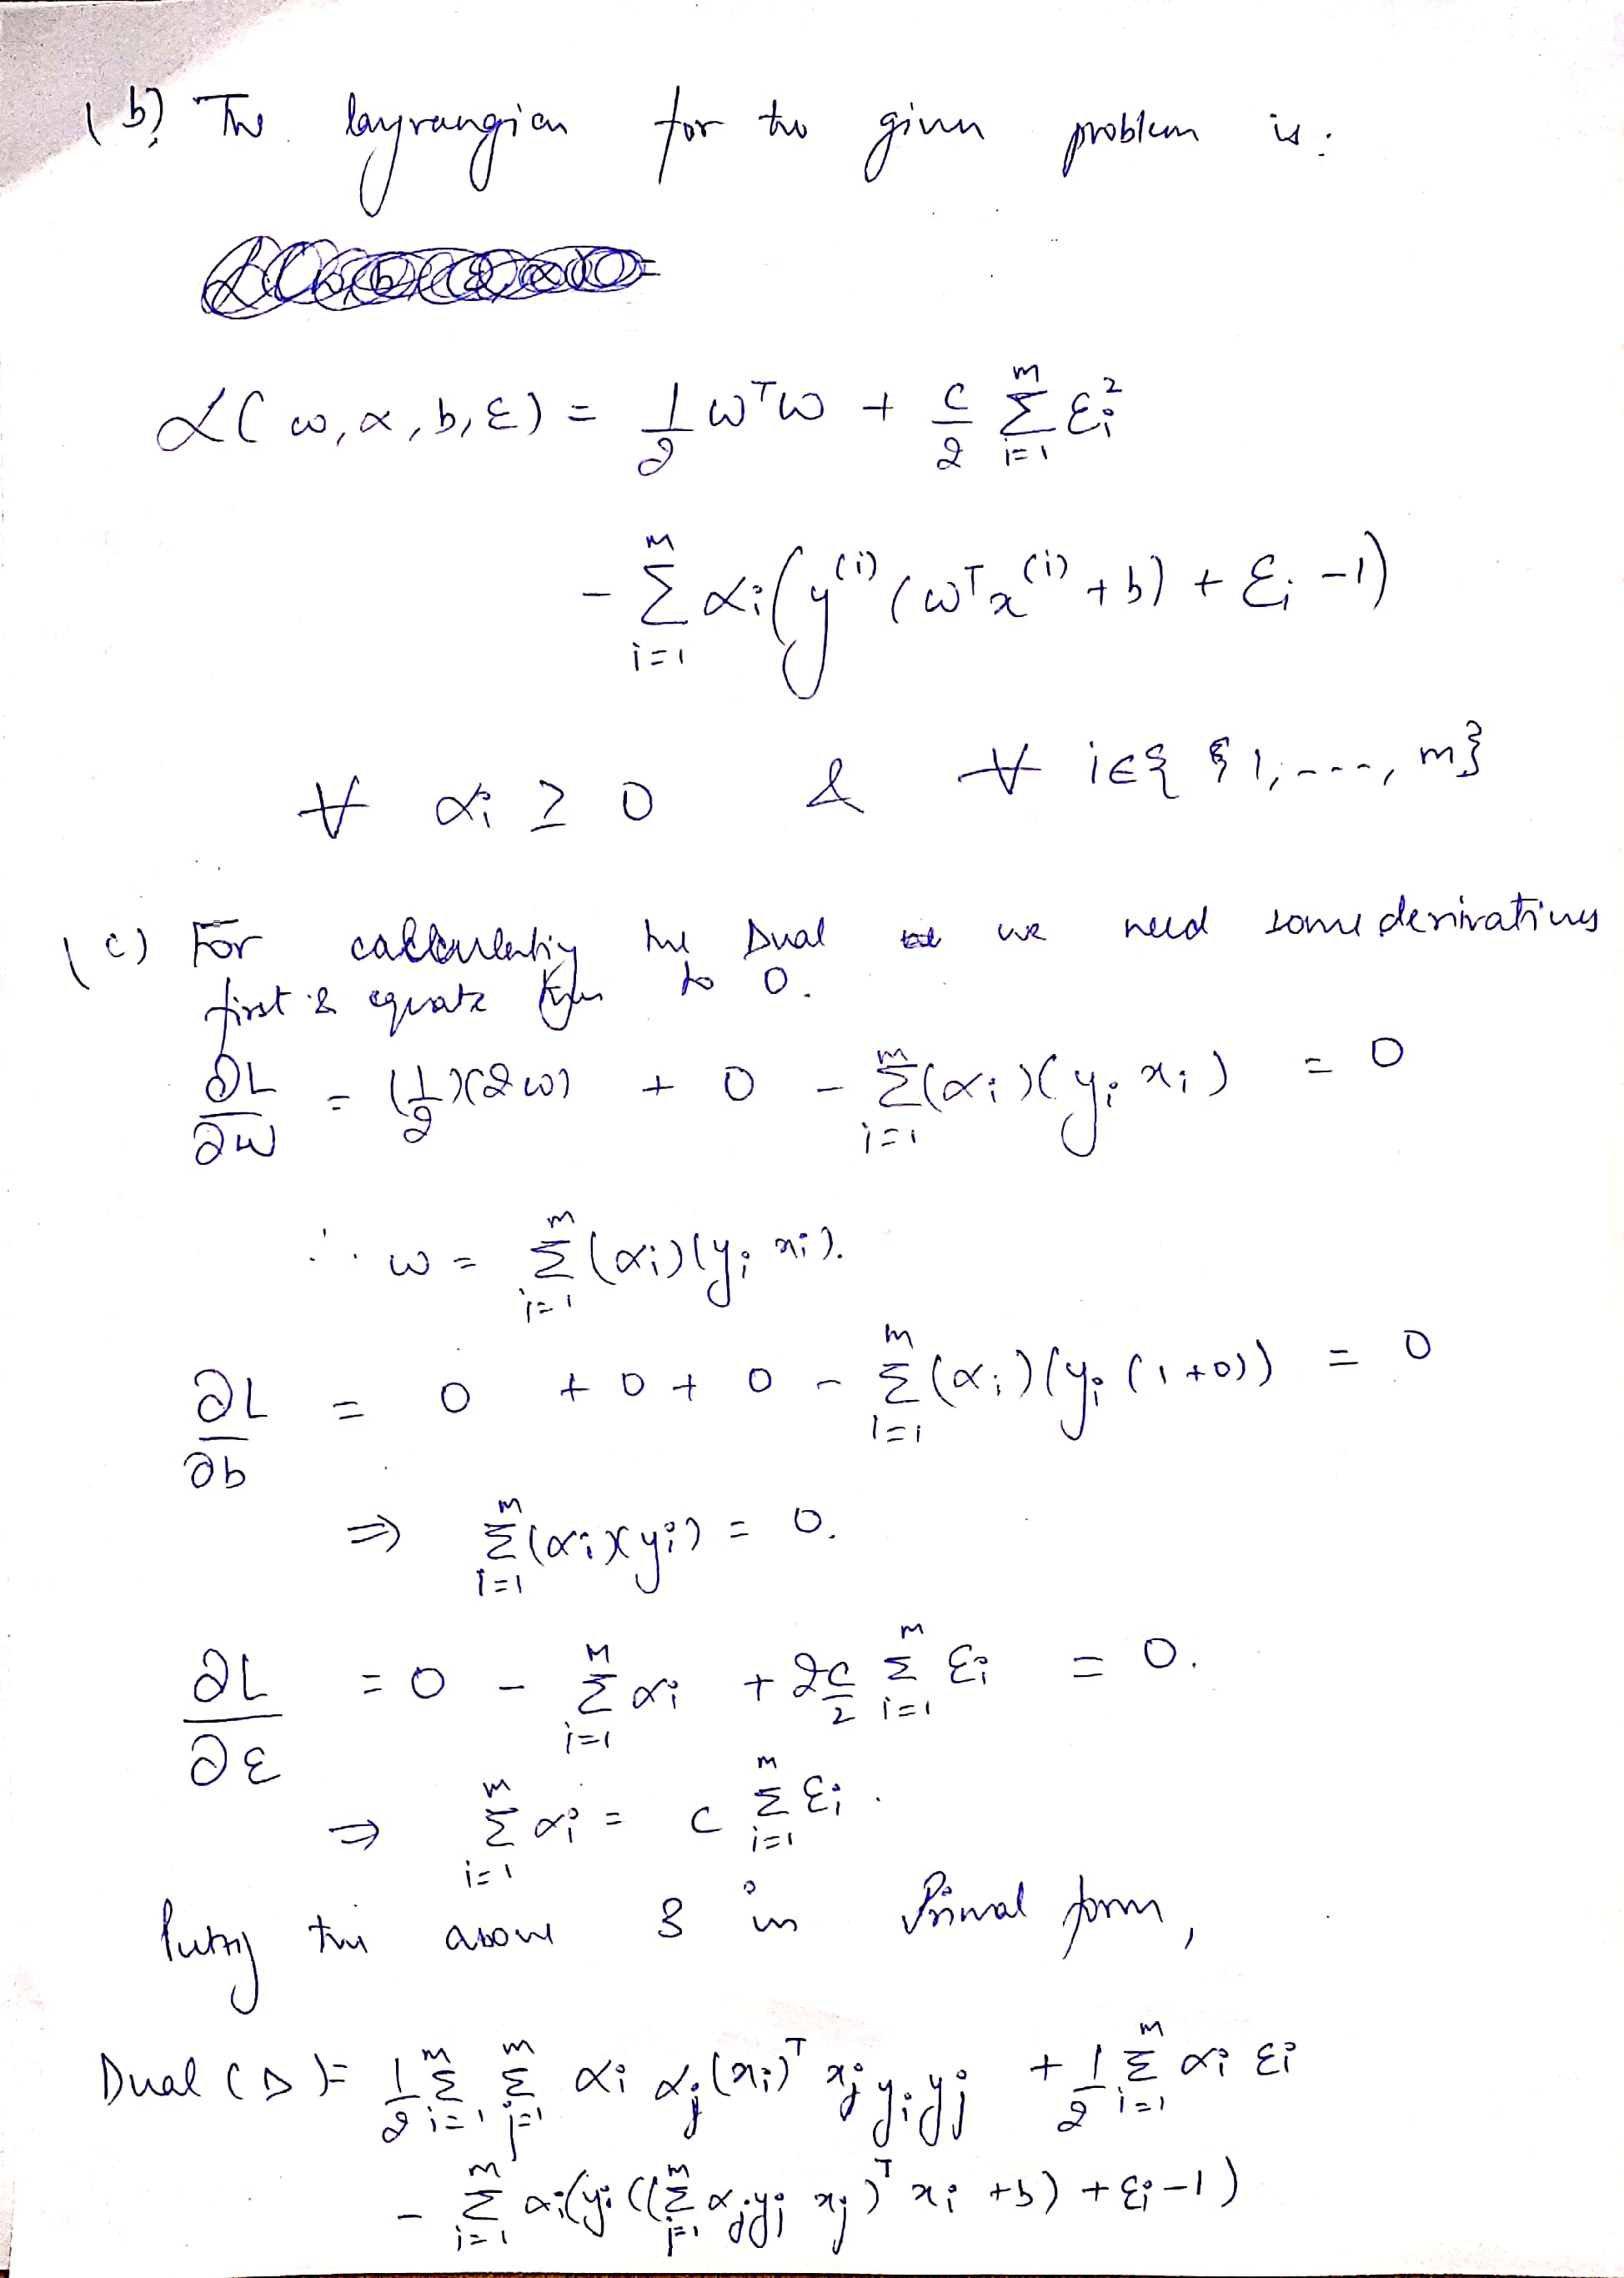 (b) The layrangian for the given problem is:
L(ω, α, b, ε) = 1/2 ω^T ω + C/2 Σ_{i=1}^{m} ε_i^2
- Σ_{i=1}^{m} α_i (y^{(i)} (ω^T x^{(i)} + b) + ε_i - 1)
∀ α_i ≥ 0 & ∀ i ∈ { 1, ---, m}
(c) For calculating the Dual we need some derivatives
first & equate them to 0.
∂L/∂w = (1/2)(2ω) + 0 - Σ_{i=1}^{m} (α_i)(y_i x_i) = 0
∴ w = Σ_{i=1}^{m} (α_i)(y_i x_i).
∂L/∂b = 0 + 0 + 0 - Σ_{i=1}^{m} (α_i)(y_i (1+0)) = 0
⇒ Σ_{i=1}^{m} (α_i)(y_i) = 0.
∂L/∂ε = 0 - Σ_{i=1}^{m} α_i + 2C/2 Σ_{i=1}^{m} ε_i = 0.
⇒ Σ_{i=1}^{m} α_i = C Σ_{i=1}^{m} ε_i.
Puting the above 3 in Primal form,
Dual (D) = 1/2 Σ_{i=1}^{m} Σ_{j=1}^{m} α_i α_j (x_i)^T x_j y_i y_j + 1/2 Σ_{i=1}^{m} α_i ε_i
- Σ_{i=1}^{m} α_i (y_i ((Σ_{j=1}^{m} α_j y_j x_j)^T x_i + b) + ε_i - 1)